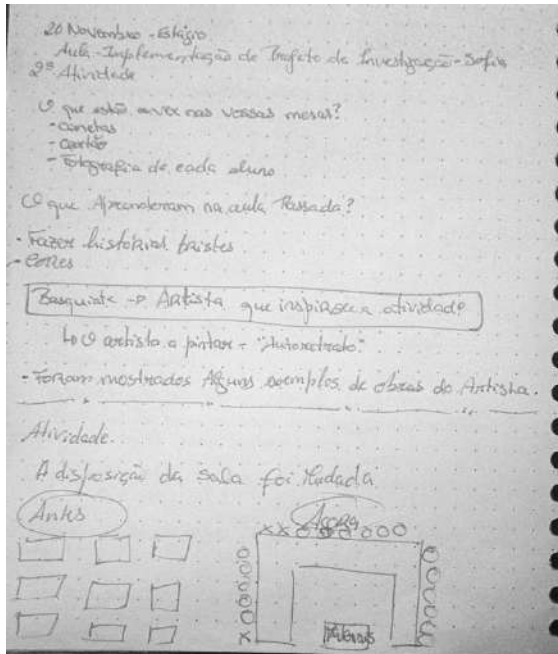 20 Novembro - Estágio
Aula - Implementação do Projeto de Investigação - Sofia
2ª Atividade
O que estão a ver nas vossas mesas?
- canetas
- cartão
- Fotografia de cada aluno
O que Aprenderam na aula Passada?
- Fazer histórias tristes
- Cores
Basquiat -> Artista que inspirou a atividade
↳ O artista a pintar - "Autoretrato".
- Foram mostrados Alguns exemplos de obras do Artista.
Atividade.
A disposição da sala foi Mudada
Antes
Agora